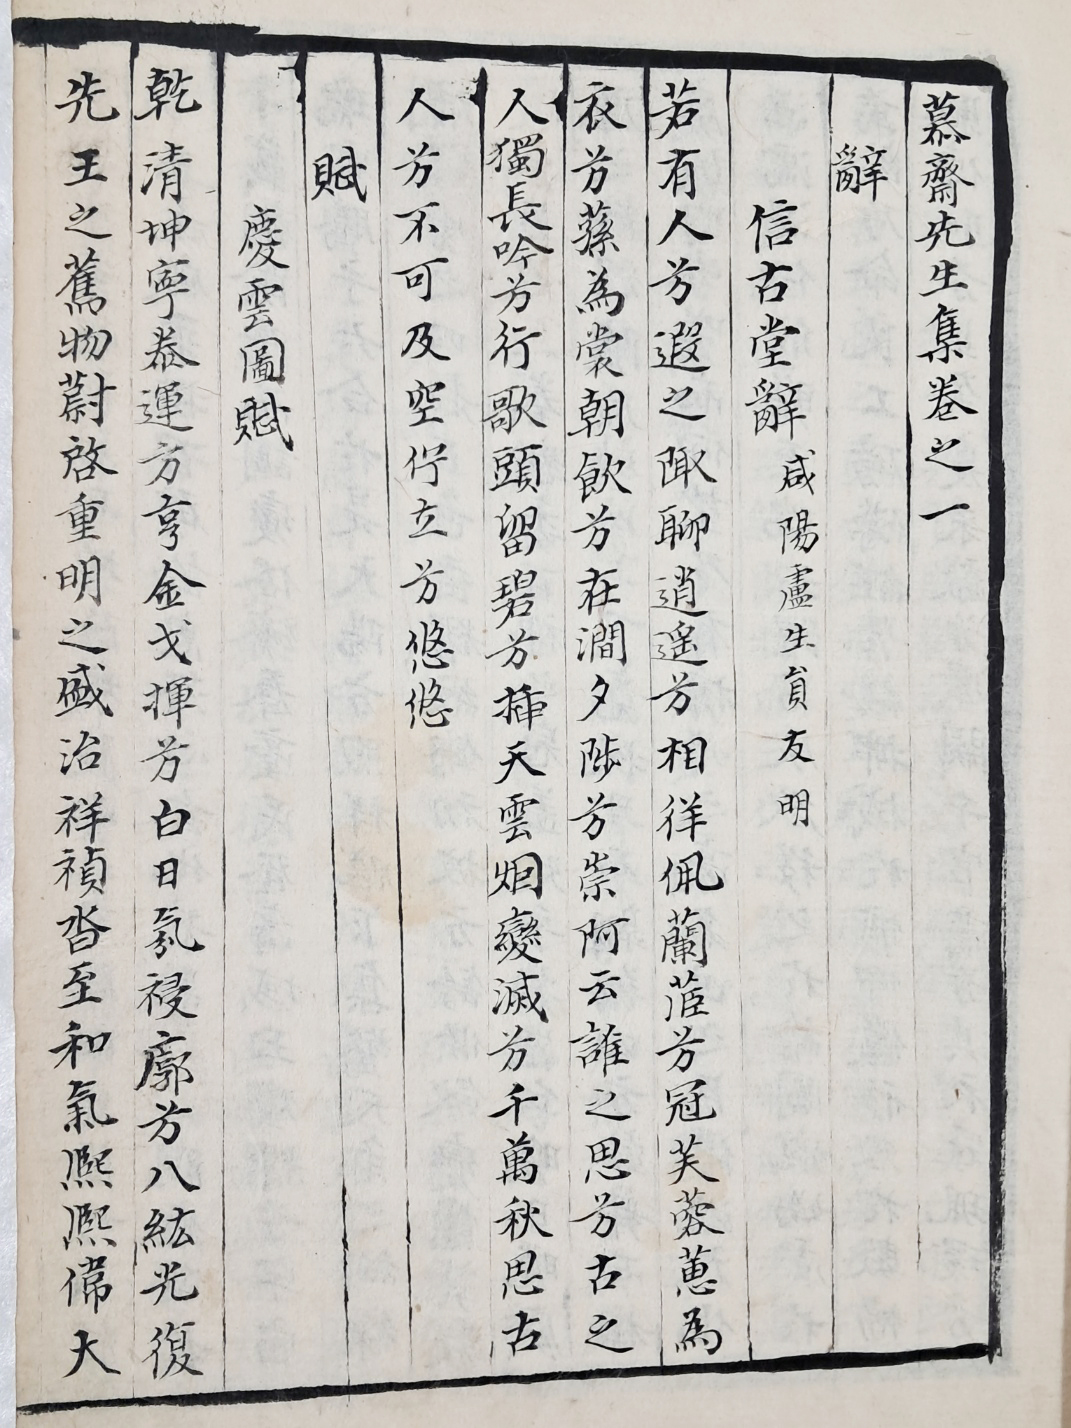 慕齋先生集卷之一
辭
信古堂辭 咸陽盧生員友明
若有人兮遐之陬聊逍遥兮相徉佩蘭茝兮冠芙蓉蕙為
衣兮蓀為裳朝飮兮在澗夕陟兮崇阿云誰之思兮古之
人獨長吟兮行歌頭留碧兮揷天雲烟變滅兮千萬秋思古
人兮不可及空佇立兮悠悠
賦
慶雲圖賦
乾清坤寧泰運方亨金戈揮兮白日氛祲廓兮八紘光復
先王之舊物蔚啓重明之盛治祥禎沓至和氣熙熙備大